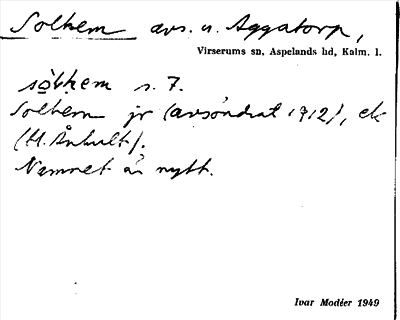 Solhem avs. u. Aggatorp,
Virserums sn, Aspelands hd, Kalm. l.
sòlhem s. 7.
Solhem jr (avsöndrat 1912), ek
(H. Ånhult).
Namnet är nytt.
Ivar Modéer 1949